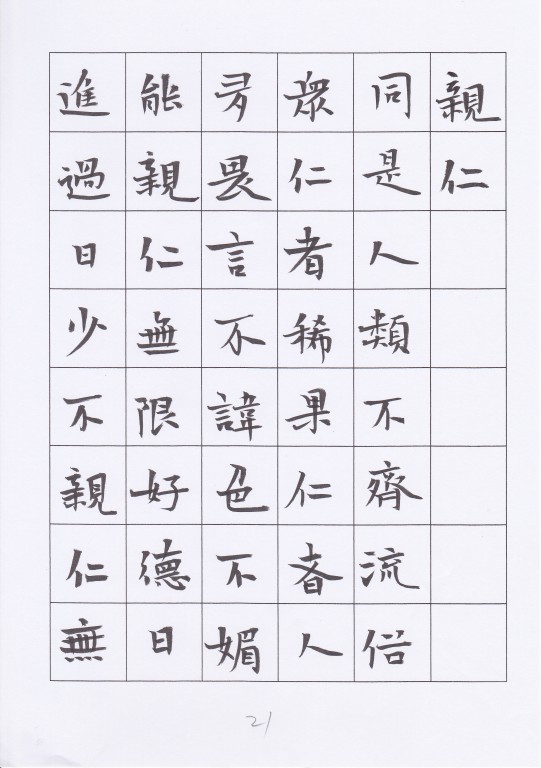 親仁
同是人類不齊流俗
眾仁者稀果仁者人
夛畏言不諱色不媚
能親仁無限好德日
進過日少不親仁無
21